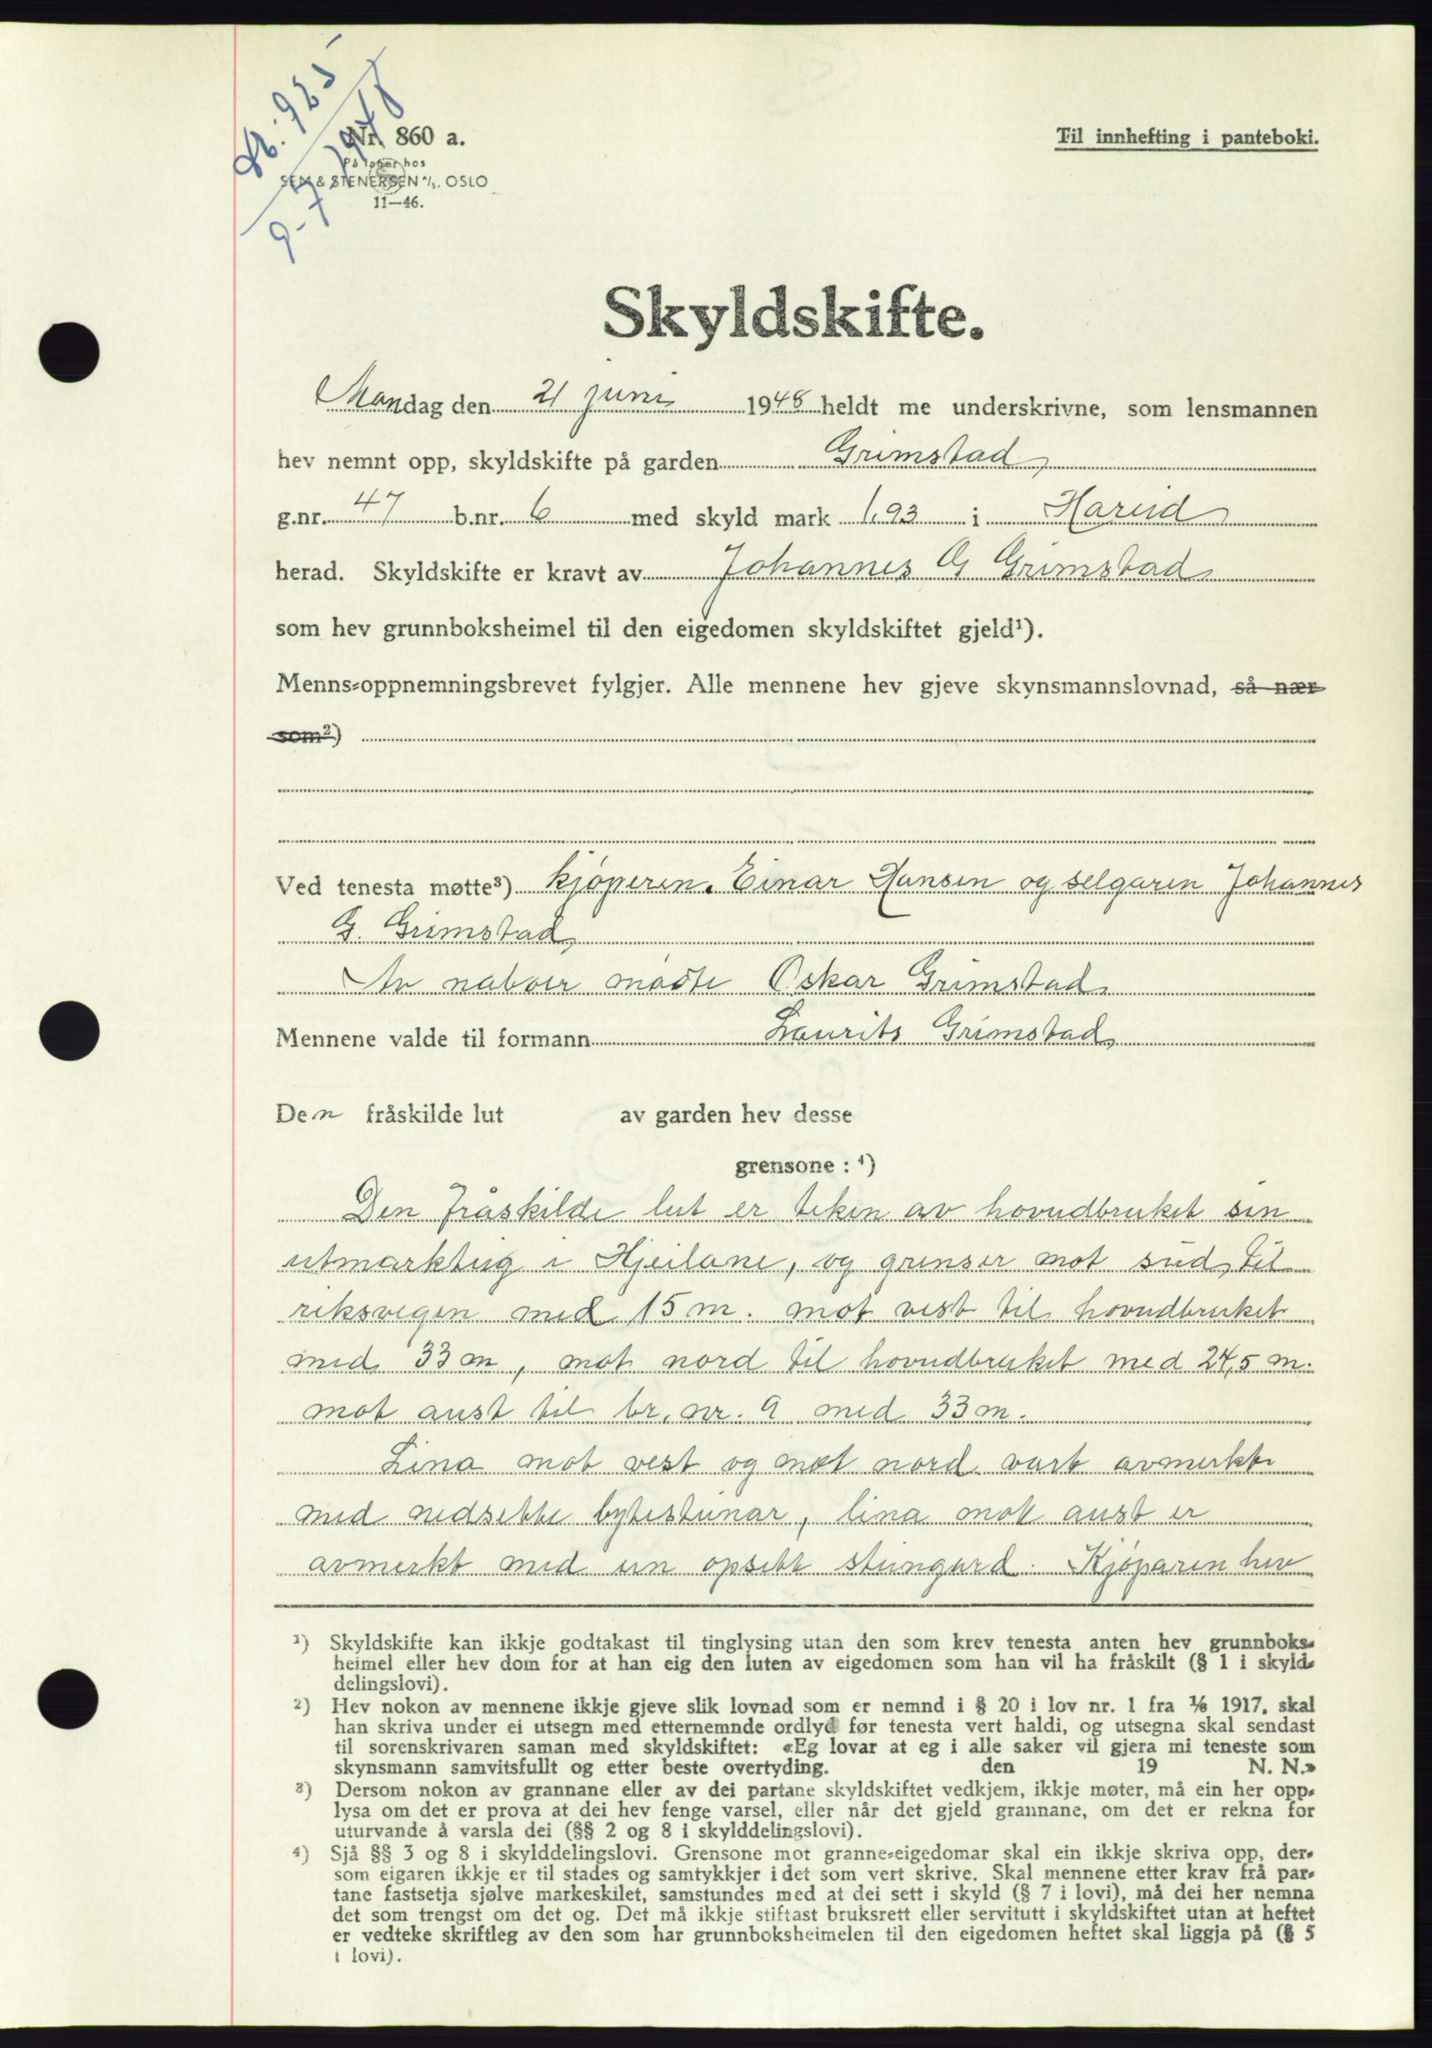 Db. 925
9-7 1948
Nr. 860 a.
På lager hos
SEM & STENERSEN A/S, OSLO
11—46.
Til innhefting i panteboki.
Skyldskifte.
Mandag den 21 juni 1948 heldt me underskrivne, som lensmannen
hev nemnt opp, skyldskifte på garden Grimstad
g.nr. 47 b.nr. 6 med skyld mark 1,93 i Hareid
herad. Skyldskifte er kravt av Johannes G Grimstad
som hev grunnboksheimel til den eigedomen skyldskiftet gjeld¹).
Menns-oppnemningsbrevet fylgjer. Alle mennene hev gjeve skynsmannslovnad, så nær
som²)
Ved tenesta møtte³) kjøperen. Einar Hansen og selgaren Johannes
G. Grimstad
Av naboer møtte Oskar Grimstad
Mennene valde til formann Laurits Grimstad
Den fråskilde lut av garden hev desse
grensone : ⁴)
Den fråskilde lut er teken av hovudbruket sin
utmarkteig i Hjeilane, og grenser mot sud til
riksvegen med 15 m. mot vest til hovudbruket
med 33 m, mot nord til hovudbruket med 24,5 m.
mot aust til br. nr. 9 med 33 m.
Lina mot vest og mot nord vart avmerkt
med nedsette bytesteinar, lina mot aust er
avmerkt med ein opsett steingard. Kjøparen hev
¹) Skyldskifte kan ikkje godtakast til tinglysing utan den som krev tenesta anten hev grunnboks-
heimel eller hev dom for at han eig den luten av eigedomen som han vil ha fråskilt (§ 1 i skyld-
delingslovi).
²) Hev nokon av mennene ikkje gjeve slik lovnad som er nemnd i § 20 i lov nr. 1 fra 1/6 1917, skal
han skriva under ei utsegn med etternemnde ordlyd før tenesta vert haldi, og utsegna skal sendast
til sorenskrivaren saman med skyldskiftet: «Eg lovar at eg i alle saker vil gjera mi teneste som
skynsmann samvitsfullt og etter beste overtyding. den 19 N. N.»
³) Dersom nokon av grannane eller av dei partane skyldskiftet vedkjem, ikkje møter, må ein her opp-
lysa om det er prova at dei hev fenge varsel, eller når det gjeld grannane, om det er rekna for
uturvande å varsla dei (§§ 2 og 8 i skylddelingslovi).
⁴) Sjå §§ 3 og 8 i skylddelingslovi. Grensone mot granne-eigedomar skal ein ikkje skriva opp, der-
som eigaren ikkje er til stades og samtykkjer i det som vert skrive. Skal mennene etter krav frå par-
tane fastsetja sjølve markeskilet, samstundes med at dei sett i skyld (§ 7 i lovi), må dei her nemna
det som trengst om det og. Det må ikkje stiftast bruksrett eller servitutt i skyldskiftet utan at heftet
er vedteke skriftleg av den som har grunnboksheimelen til den eigedomen heftet skal liggja på (§ 5
i lovi).